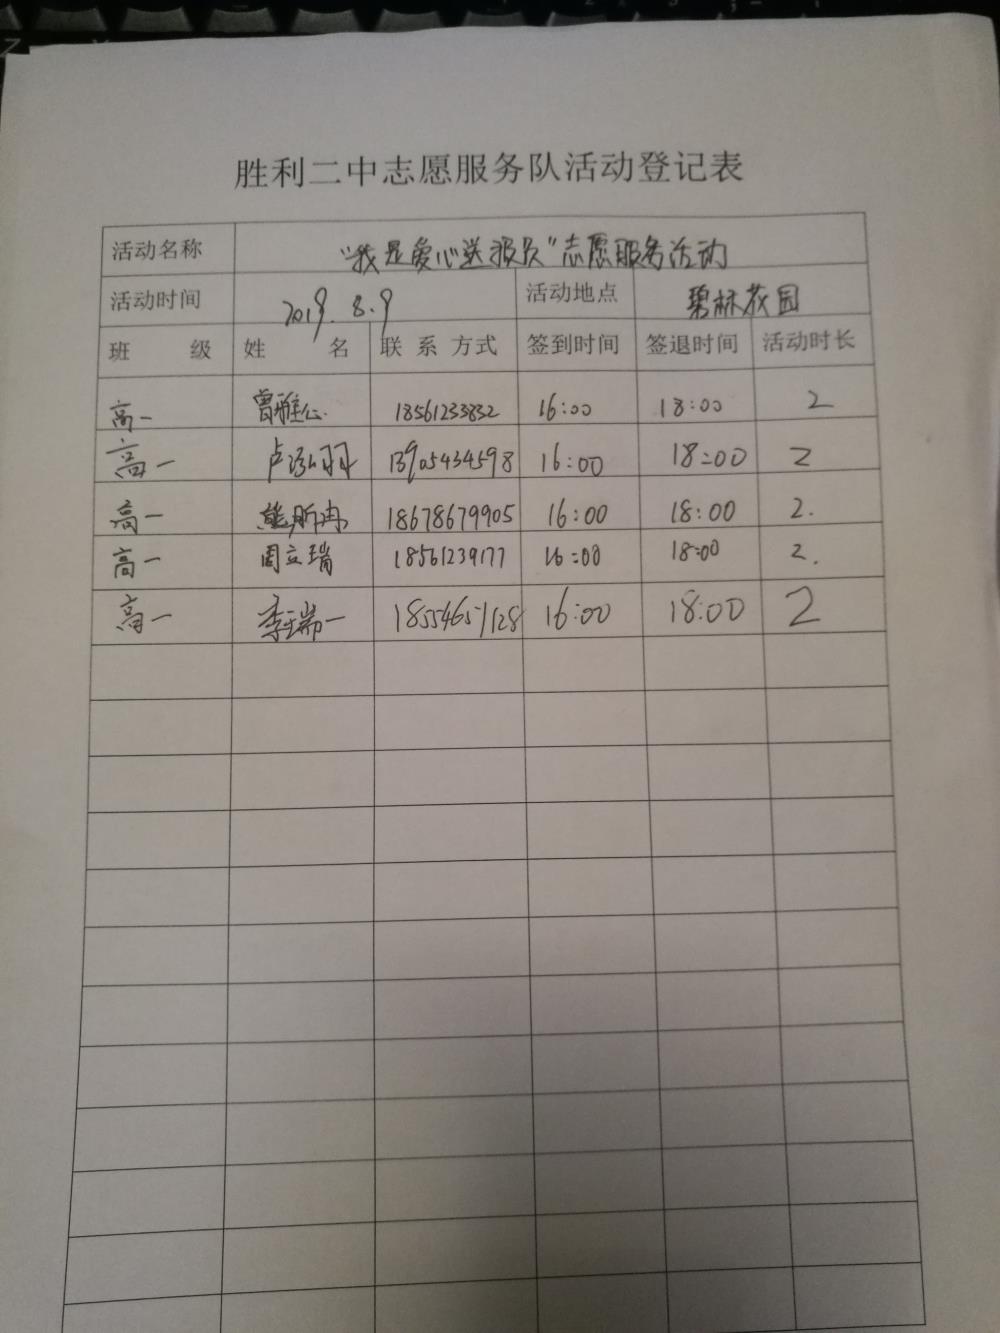 胜利二中志愿服务队活动登记表
活动名称 “我是爱心送报员”志愿服务活动
活动时间 2019.8.9 活动地点 碧林花园
班 级 姓 名 联系方式 签到时间 签退时间 活动时长
高一 曾雅心 18561233832 16:00 18:00 2
高一 卢泓羽 13905434598 16:00 18:00 2
高一 熊昕冉 18678679905 16:00 18:00 2.
高一 周立瑞 18561239177 16:00 18:00 2.
高一 李瑞一 18554651128 16:00 18:00 2